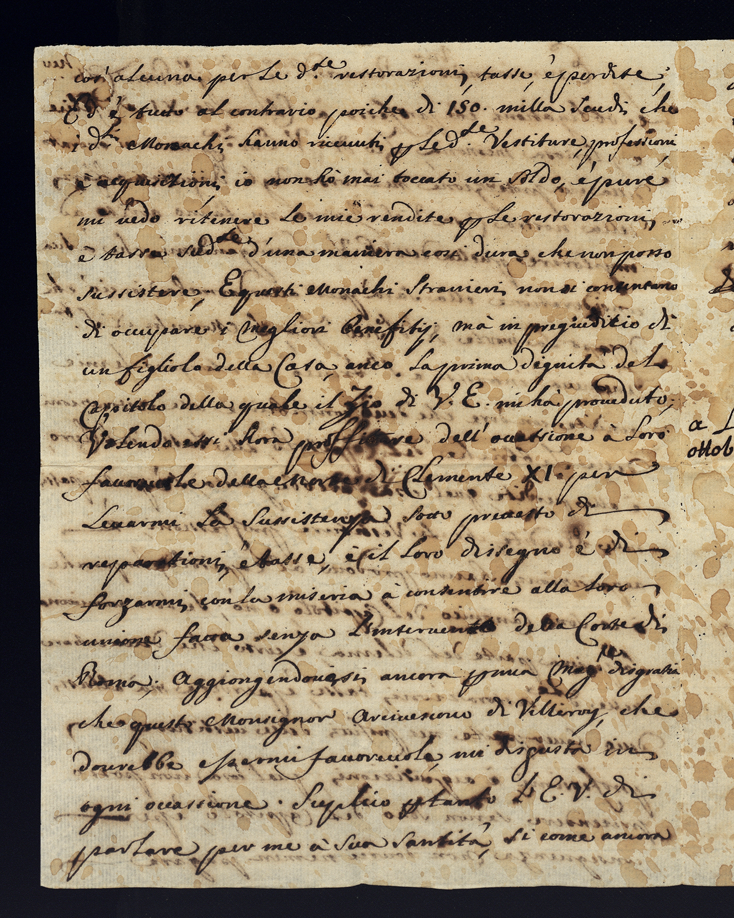 cosa alcuna per Le d.te restorazioni, tasse, è perdite
Ed è tutto al contrario poiche di 150. milla Scudi che
i d.ti Monachi hanno ricevuti p Le d.te Vestiture, professioni
e acquisitioni, io non hò mai toccato un Soldo, è pure
mi vedo ritenere Le mie rendite p Le restorazioni,
e tasse sud.te d'una maniera così dura che non posso
sussistere, E questi Monachi Stranieri, non si contentano
di occupare i Megliori benefitij, mà in pregiuditio di
un figliolo della Casa anco La prima dignità del
Capitolo della quale il Zio di V. E. mi ha proveduto,
Volendo essi Hora profittare dell' ocassione à Loro
favorevole della Morte di Clemente XI. per
Levarmi La Sussistenza, sotto pretesto di
reparationi, è tasse, è il Loro disegno è di
forzarmi, con la miseria à consentire alla Loro
unione fatta senza L'intervento della Corte di
Roma; Aggiongendovisi ancora p mia Mag.re disgratia
che questo Monsignor Arcivescovo di Villeroy, che
dovrebbe essermi favorevole, mi disgusta in
ogni ocassione. Suplico p tanto L'E. V. di
parlare per me à Sua Santità, Si come ancora
a L
ottob